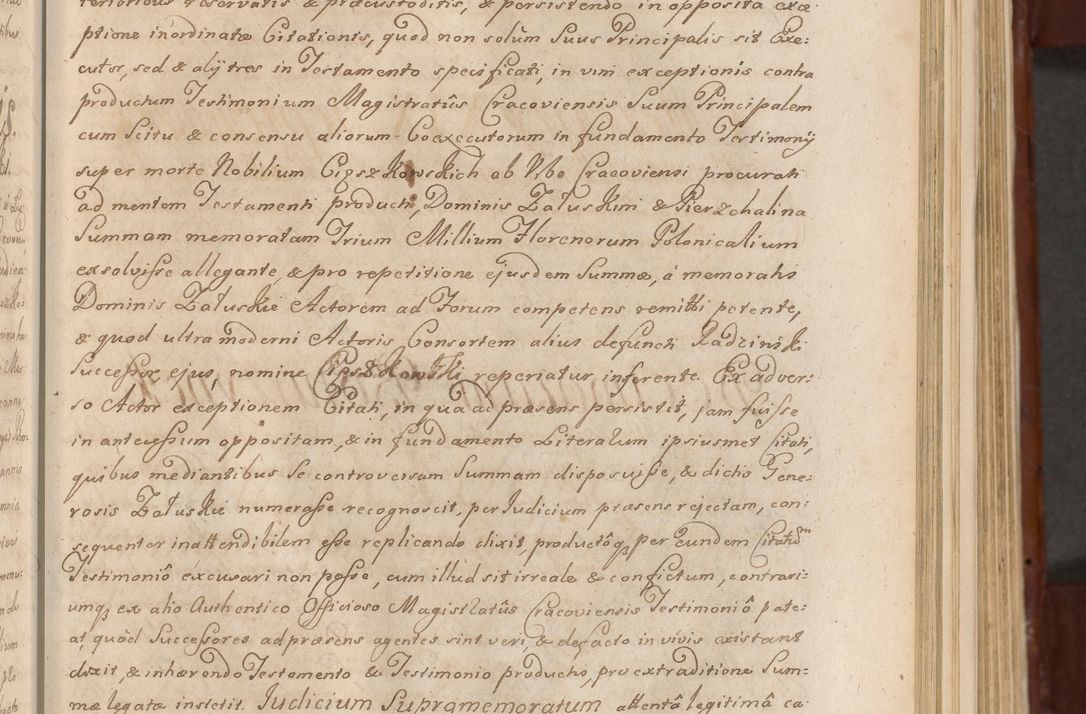 teriorious reservatis & praecustoditis, & persistendo in opposita exce-
ptione inordinatae Citationis, quod non solùm Suus Principalis sit Exe:
cutor, sed & alij tres in Testamento specificati, in vim exceptionis contra
productum Testimonium Magistratûs Cracoviensis Suum Principalem
cum Scitu & consensu aliorum Coexecutorum in fundamento Testimonij
super morte Nobilium Cipszkowskich ab Urbe Cracoviensi procurati
ad mentem Testamenti producti, Dominis Załuskim & Pierzchalina
Summam memoratam Trium Millium Florenorum Polonicalium
exsolvisse allegante, & pro repetitione ejusdem Summae, á memoratis
Dominis Załuskie Actorem ad Forum competens remitti petente,
& quod ultra moderni Actoris Consortem alius defuncti Radzinski
Successor ejus, nomine Cipszkowski reperiatur inferente. Ex adver:
so Actor exceptionem Citati, in qua ad praesens persistit, jam fuisse
in antecessum oppositam, & in fundamento Literarum ipsiusmet Citati,
quibus mediantibus se controversam Summam disposuisse, & dictis Gene:
rosis Załuskie numerasse recognoscit, per Judicium praesens rejectam, con:
sequenter inattendibilem esse replicando dixit, productôq3 per Eundem Citatũ
Testimoniô excusari non posse, cum illud sit irreale & confictum, contrari:
umq3 ex alio Authentico Officioso Magistratûs Cracoviensis Testimoniô pate:
at, quòd Successores ad praesens agentes sint veri, & defacto in vivis existant
dixit, & inhaerendo Testamento & Testimonio productis, pro extraditione Sum:
mae legatae institit. Judicium Supramemoratum attentâ legitimâ ca: